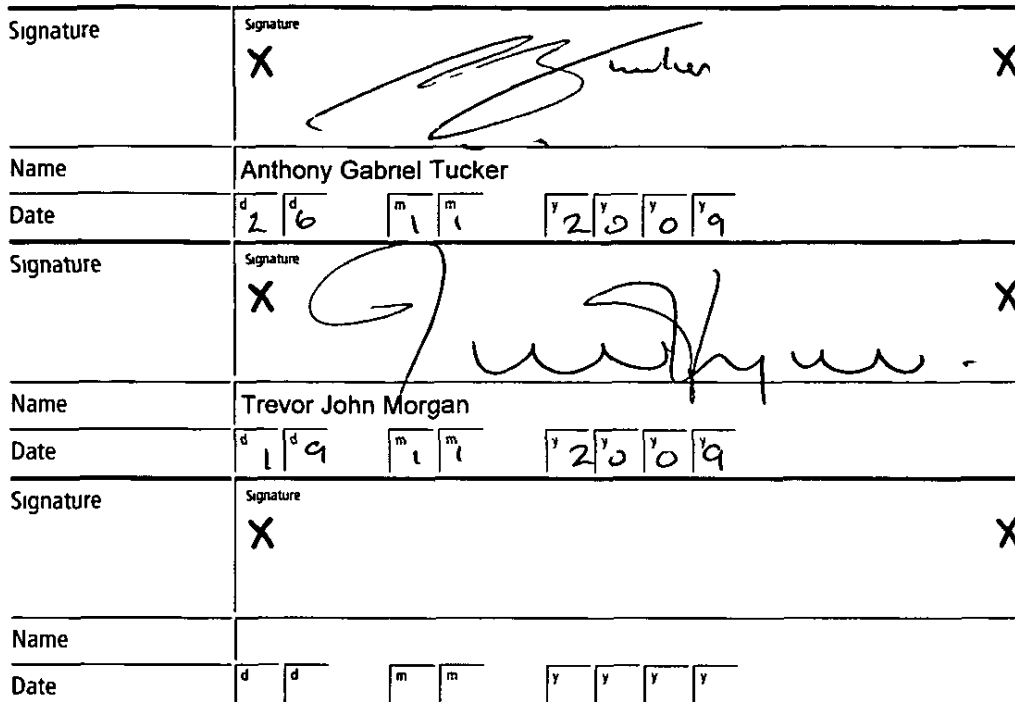 Signature Signature
X X
Name Anthony Gabriel Tucker
Date d 2 d 6 m 1 m 1 y 2 y 0 y 0 y 9
Signature Signature
X X
Name Trevor John Morgan
Date d 1 d 9 m 1 m 1 y 2 y 0 y 0 y 9
Signature Signature
X X
Name
Date d d m m y y y y